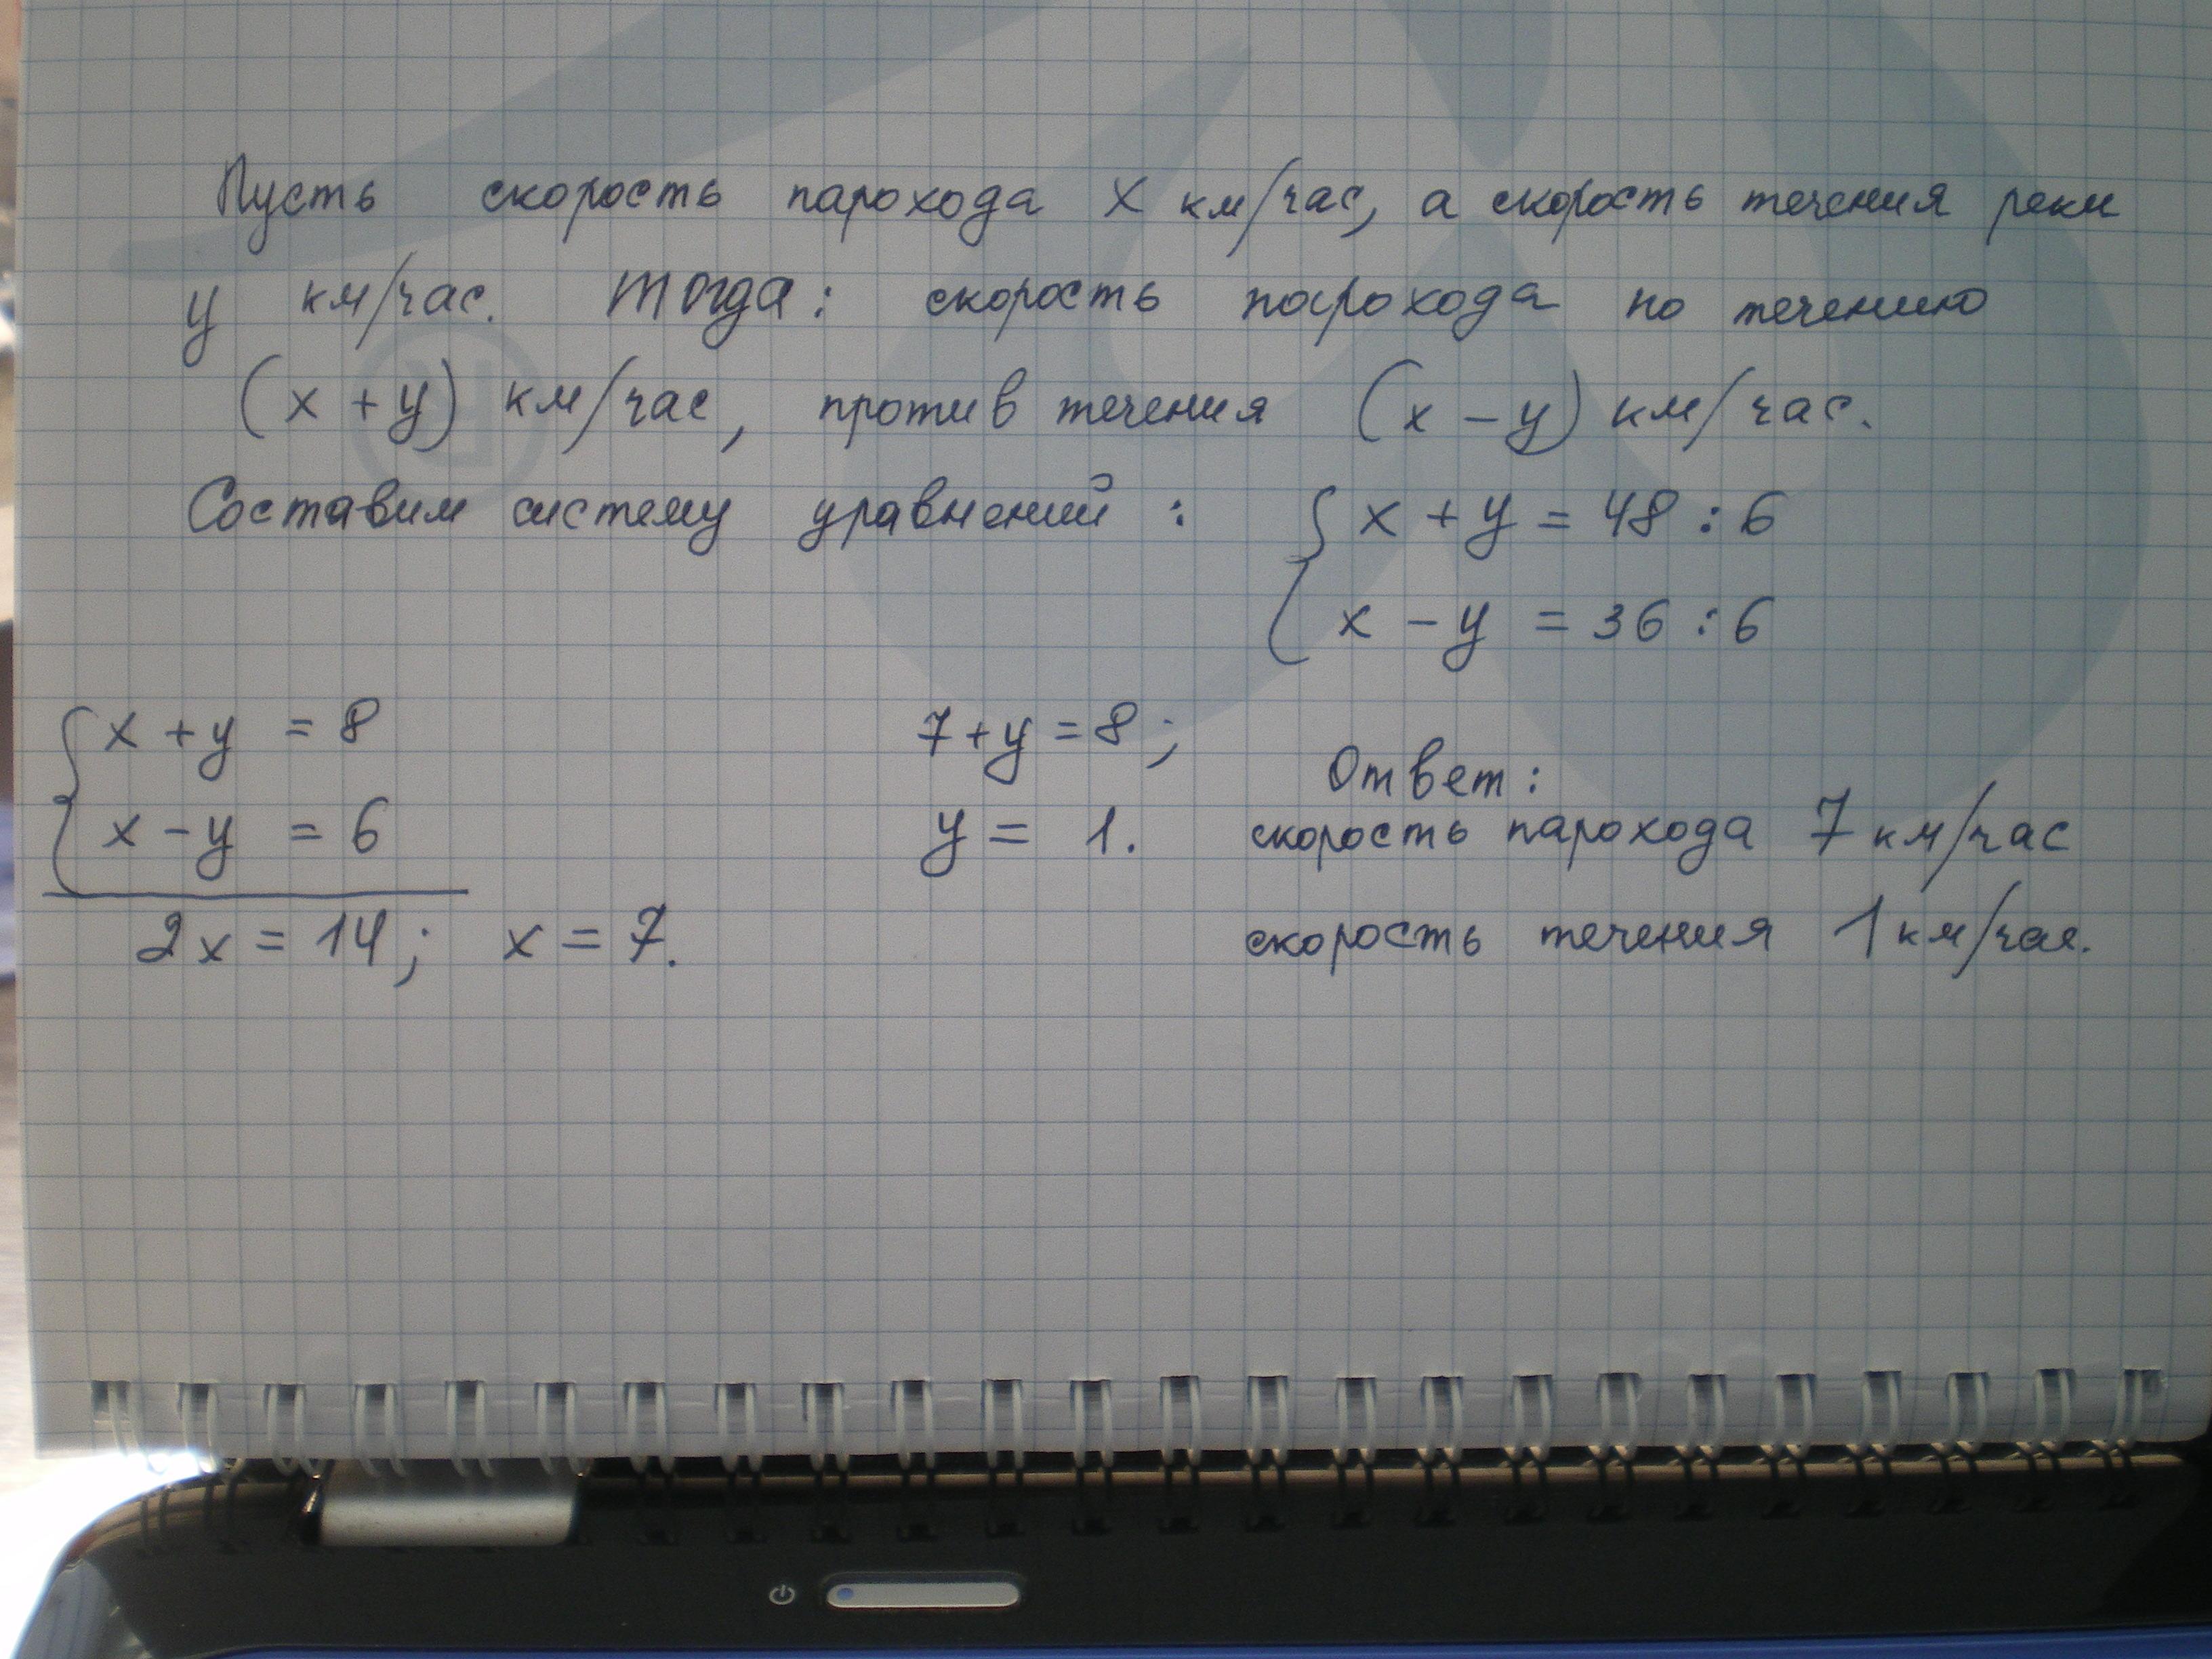 Пусть скорость парохода x км/час, а скорость течения реки
y км/час. Тогда: скорость парохода по течению
(x + y) км/час, против течения (x - y) км/час.
Составим систему уравнений : { x + y = 48 : 6
x - y = 36 : 6
{ x + y = 8
x - y = 6
2x = 14; x = 7.
7 + y = 8;
y = 1.
Ответ:
скорость парохода 7 км/час
скорость течения 1 км/час.